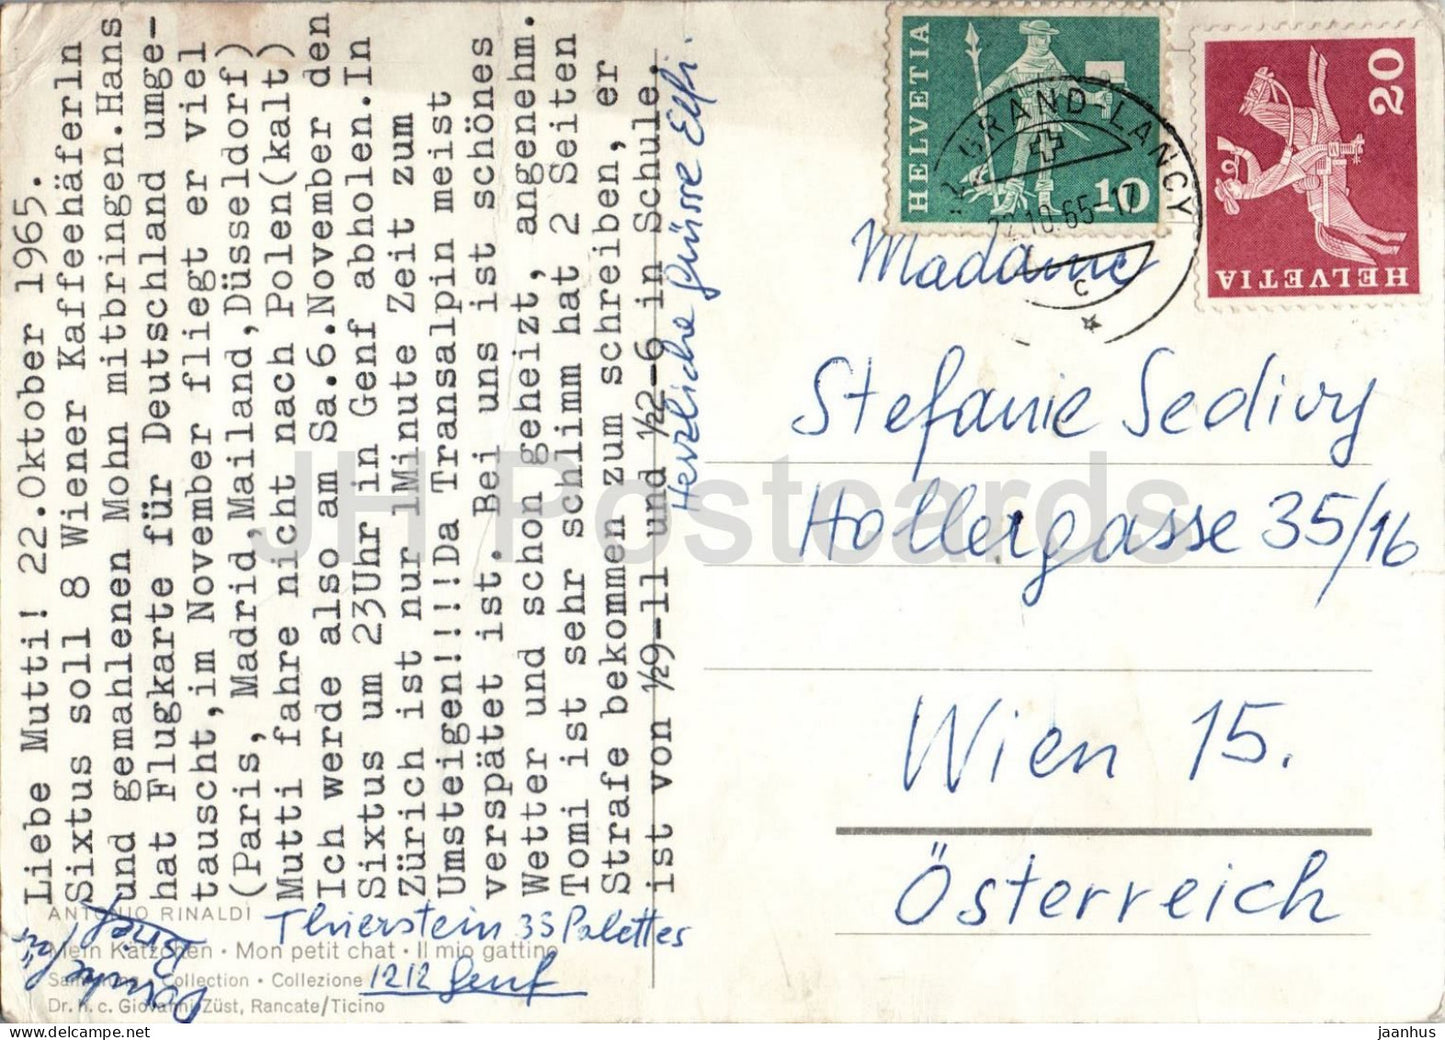 Liebe Mutti! 22.Oktober 1965.
Sixtus soll 8 Wiener Kaffeehäferln
und gemahlenen Mohn mitbringen.Hans
hat Flugkarte für Deutschland umge-
tauscht,im November fliegt er viel
(Paris, Madrid,Mailand,Düsseldorf)
Mutti fahre nicht nach Polen(kalt)
Ich werde also am Sa.6.November den
Sixtus um 23Uhr in Genf abholen.In
Zürich ist nur 1Minute Zeit zum
Umsteigen!!!!Da Transalpin meist
verspätet ist. Bei uns ist schönes
Wetter und schon geheizt, angenehm.
Tomi ist sehr schlimm hat 2 Seiten
Strafe bekommen zum schreiben, er
ist von ½9-11 und ½2-6 in Schule.
Herzliche Grüsse Elfi.
Danke für
Brief
ANTONIO RINALDI
Thierstein 33 Palettes
Mein Kätzchen · Mon petit chat · Il mio gattino
Sammlung · Collection · Collezione
1212 Genf
Dr. h. c. Giovanni Züst, Rancate/Ticino
HELVETIA
10
HELVETIA
20
GRAND-LANCY
22.10.65-17
C
Madame
Stefanie Sedivy
Hollergasse 35/16
Wien 15.
Österreich
JH Postcards
hippostcard.com/store/welcome
jaanhus